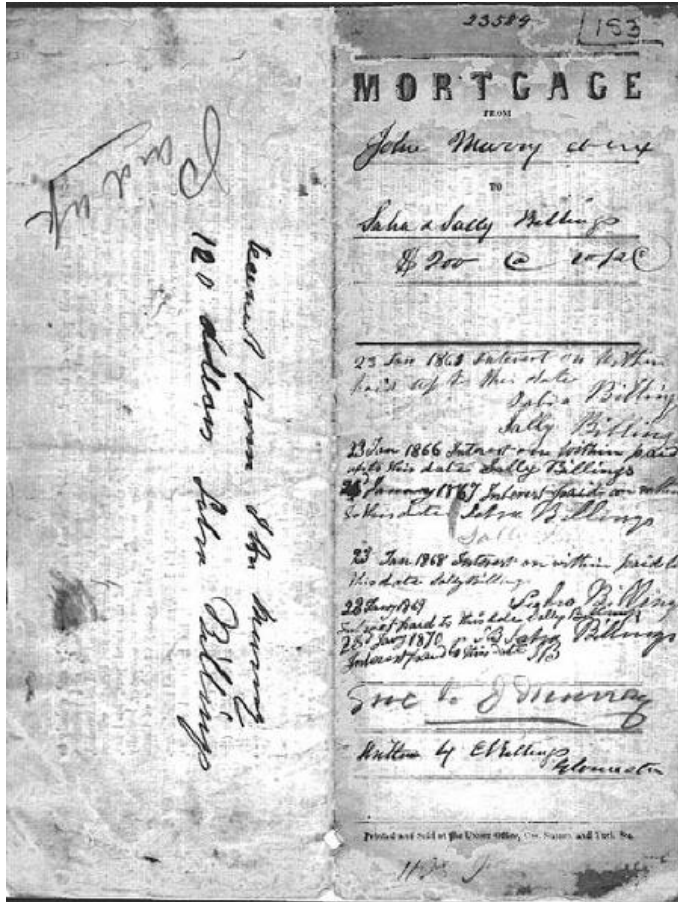 23589
153
MORTGAGE
FROM
John Murry et ux
TO
Sabra & Sally Billings
$ 200 @
23 Jan 1865 Interest on within
paid up to this date
Sabra Billing
Sally Billing
23 Jan 1866 Interest on within paid
up to this date Sally Billings
January 1867 Interest paid on within
to this date Sabra Billings
Sally
23 Jan 1868 Interest on within paid to
this date Sally Billings
23 Jany 1869 Sabra Billing
Interest paid to this date Sally Billings
23 Jany 1870 Sabra Billings
Interest paid to this date SB
Give to J Murray
Written by E Billings
Gloucester
Printed and Sold at the Union Office, Cor. Sussex and York Sts.
from John Murray
120 dollars Sabra Billings